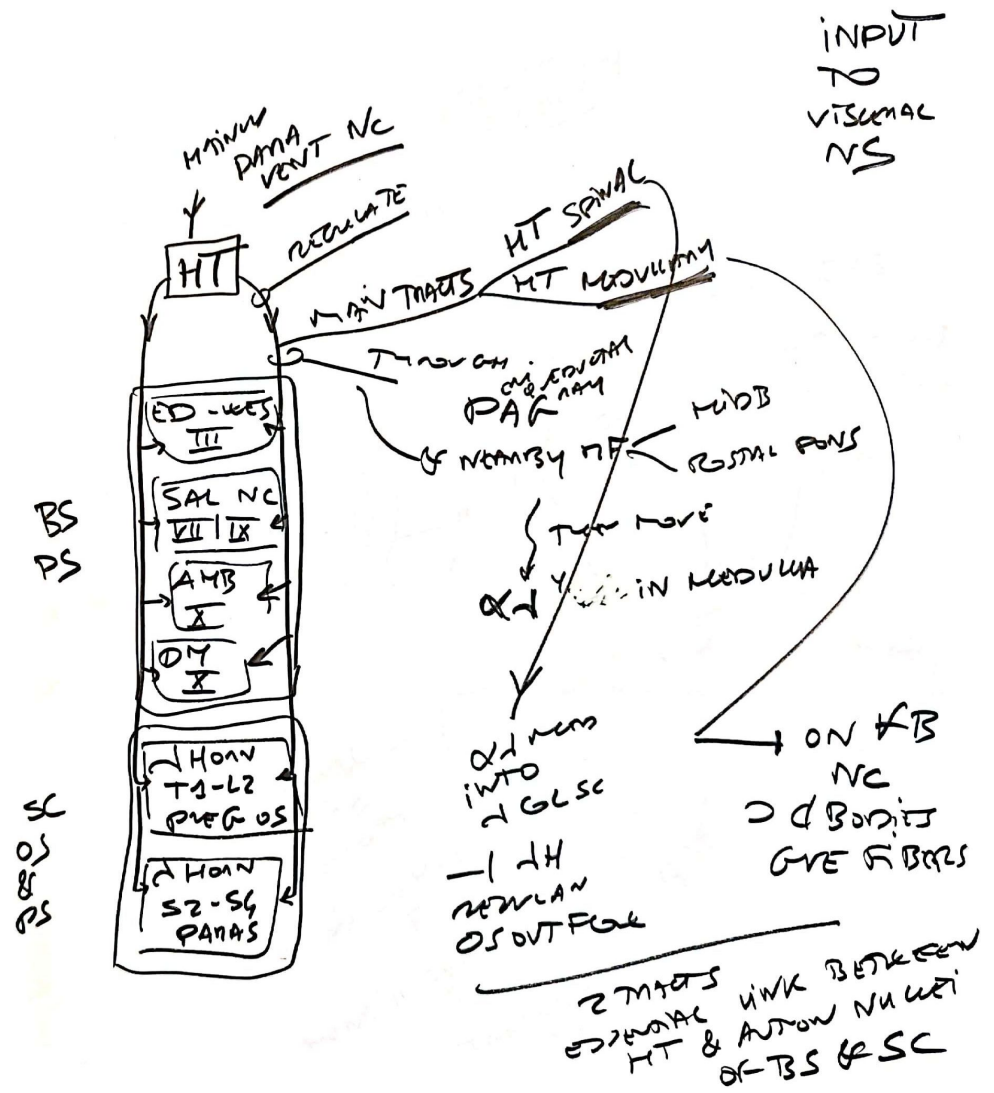 INPUT
TO
VISCERAL
NS
MAINLY
PARA
VENT NC
HT
REGULATE
MAIN TRACTS
HT SPINAL
HT MEDULLARY
THROUGH
PAG
& NEARBY RF
MIDB
ROSTAL PONS
THEN MOVE
IN MEDULLA
BS
PS
ED-WES
III
SAL NC
VII | IX
AMB
X
DM
X
SC
OS
&
PS
HORN
T1-L2
PREG OS
HORN
S2-S4
PARAS
INTO
REGULAR
OS OUTFLOW
ON
NC
BODIES
GVE FIBERS
2 TRACTS
ESSENTIAL LINK BETWEEN
HT & AUTON NUCLEI
OF BS & SC